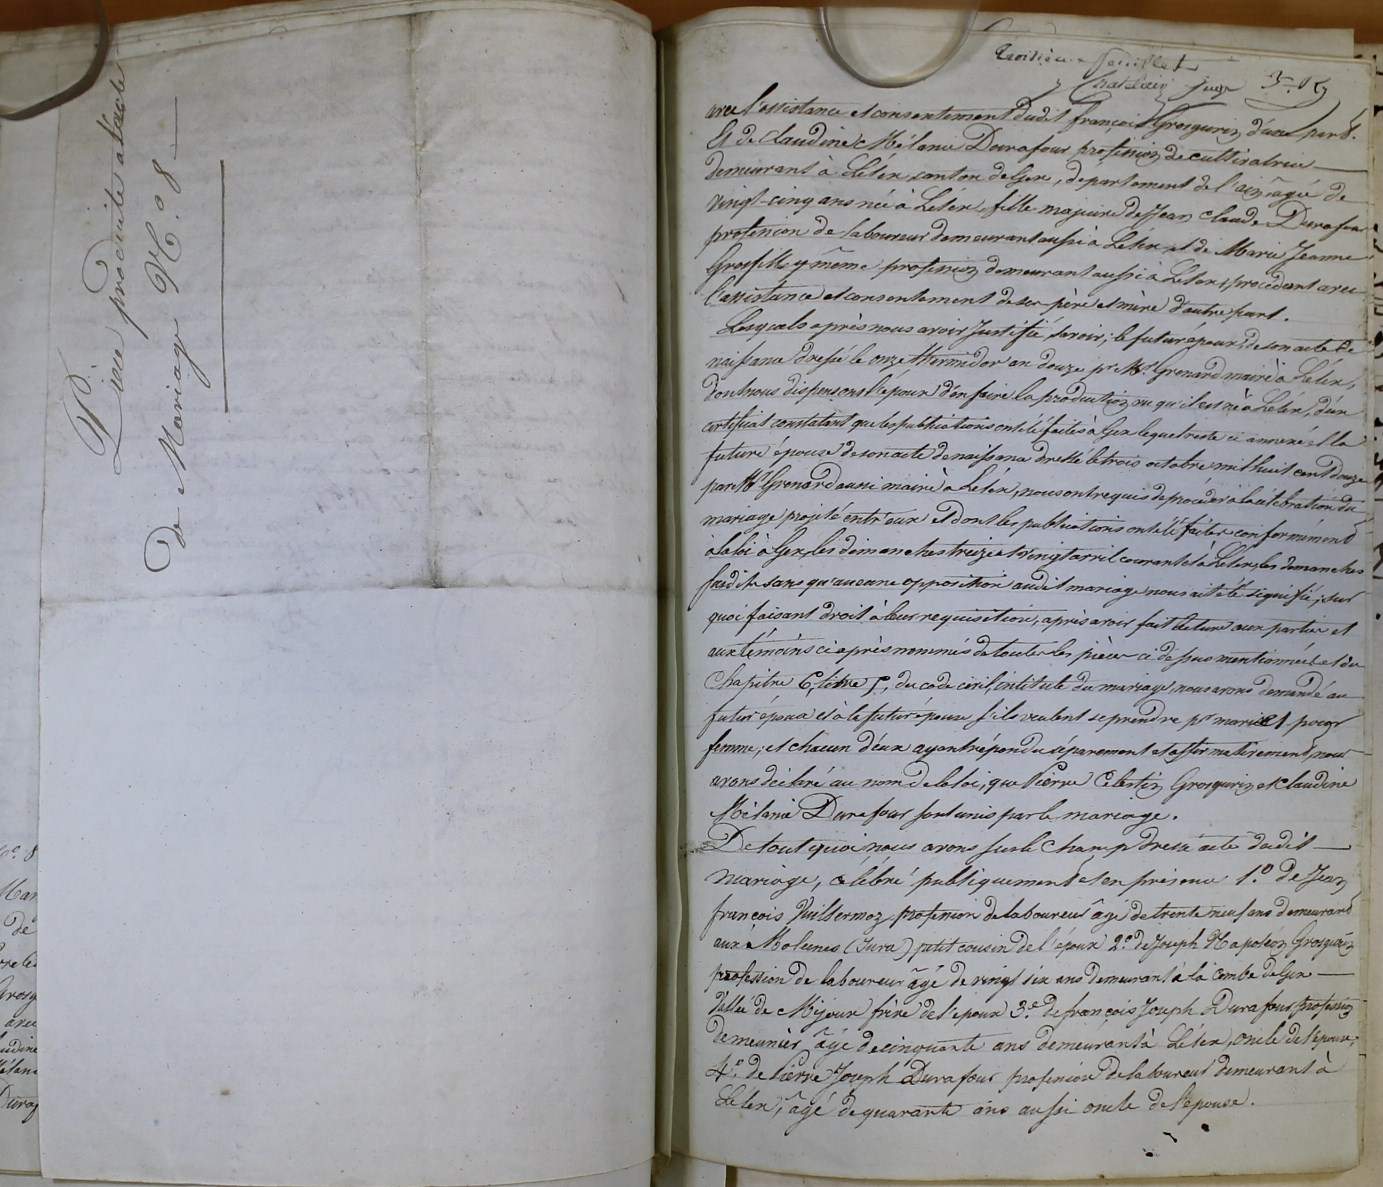 Pièce produite à l'acte
de Mariage N.° 8
troisième feuillet
avec l'assistance et consentement dudit françois Grosgurin, d'une part.
Et de Claudine Mélanie Durafour profession de cultivatrice
demeurant à Lélex canton de Gex, département de l'ain, âgée de
vingt-cinq ans née à Lélex, fille majeure de Jean Claude Durafour
profession de laboureur demeurant aussi à Lélex, et de Marie Jeanne
Grosfilley même profession demeurant aussi à Lélex, procédant avec
l'assistance et consentement de ses père et mère d'autre part.
Lesquels après nous avoir justifié, savoir; le futur époux, de son acte de
naissance dressé le onze thermidor an douze pr. Mr. Grenard maire à Lélex,
dont nous dispensons l'époux d'en faire la production vu qu'il est né à Lélex, d'un
certificat constatant que les publications ont été faites à Gex lequel reste ci annexé et la
future épouse de son acte de naissance dressé le trois octobre mil huit cent douze
par Mr. Grenard aussi maire à Lélex, nous ont requis de procéder à la célébration du
mariage projeté entr'eux et dont les publications ont été faites conformément
à la loi à Gex, les dimanches treize et vingt avril courant et à Lélex, les dimanches
susdits sans qu'aucune opposition audit mariage nous ait été signifié; sur
quoi faisant droit à leur requisition, après avoir fait lecture aux parties et
aux témoins ci après nommés de toutes les pièces ci dessus mentionnées et du
Chapitre 6, titre 5, du code civil, intitulé du mariage, nous avons demandé au
futur époux et à la future épouse s'ils veulent se prendre pr. mari et pour
femme; et chacun d'eux ayant répondu séparement et affirmativement, nous
avons déclaré au nom de la loi, que Pierre Célestin Grosgurin et Claudine
Mélanie Durafour sont unis par le mariage.
De tout quoi nous avons sur le champ dressé acte dudit
mariage, célébré publiquement et en présence 1.° de Jean
françois Vuillermoz profession de laboureur âgé de trente neuf ans demeurant
aux Molunes (Jura) petit cousin de l'époux 2.° de Joseph Napoléon Grosgurin
profession de laboureur âgé de vingt six ans demeurant à la combe de Gex
Vallée de Mijoux frère de l'époux 3.° de françois Joseph Durafour profession
de meunier âgé de cinquante ans demeurant à Lélex, oncle de l'épouse;
4.° de Pierre Joseph Durafour profession de laboureur demeurant à
Lélex, âgé de quarante ans aussi oncle de l'épouse.